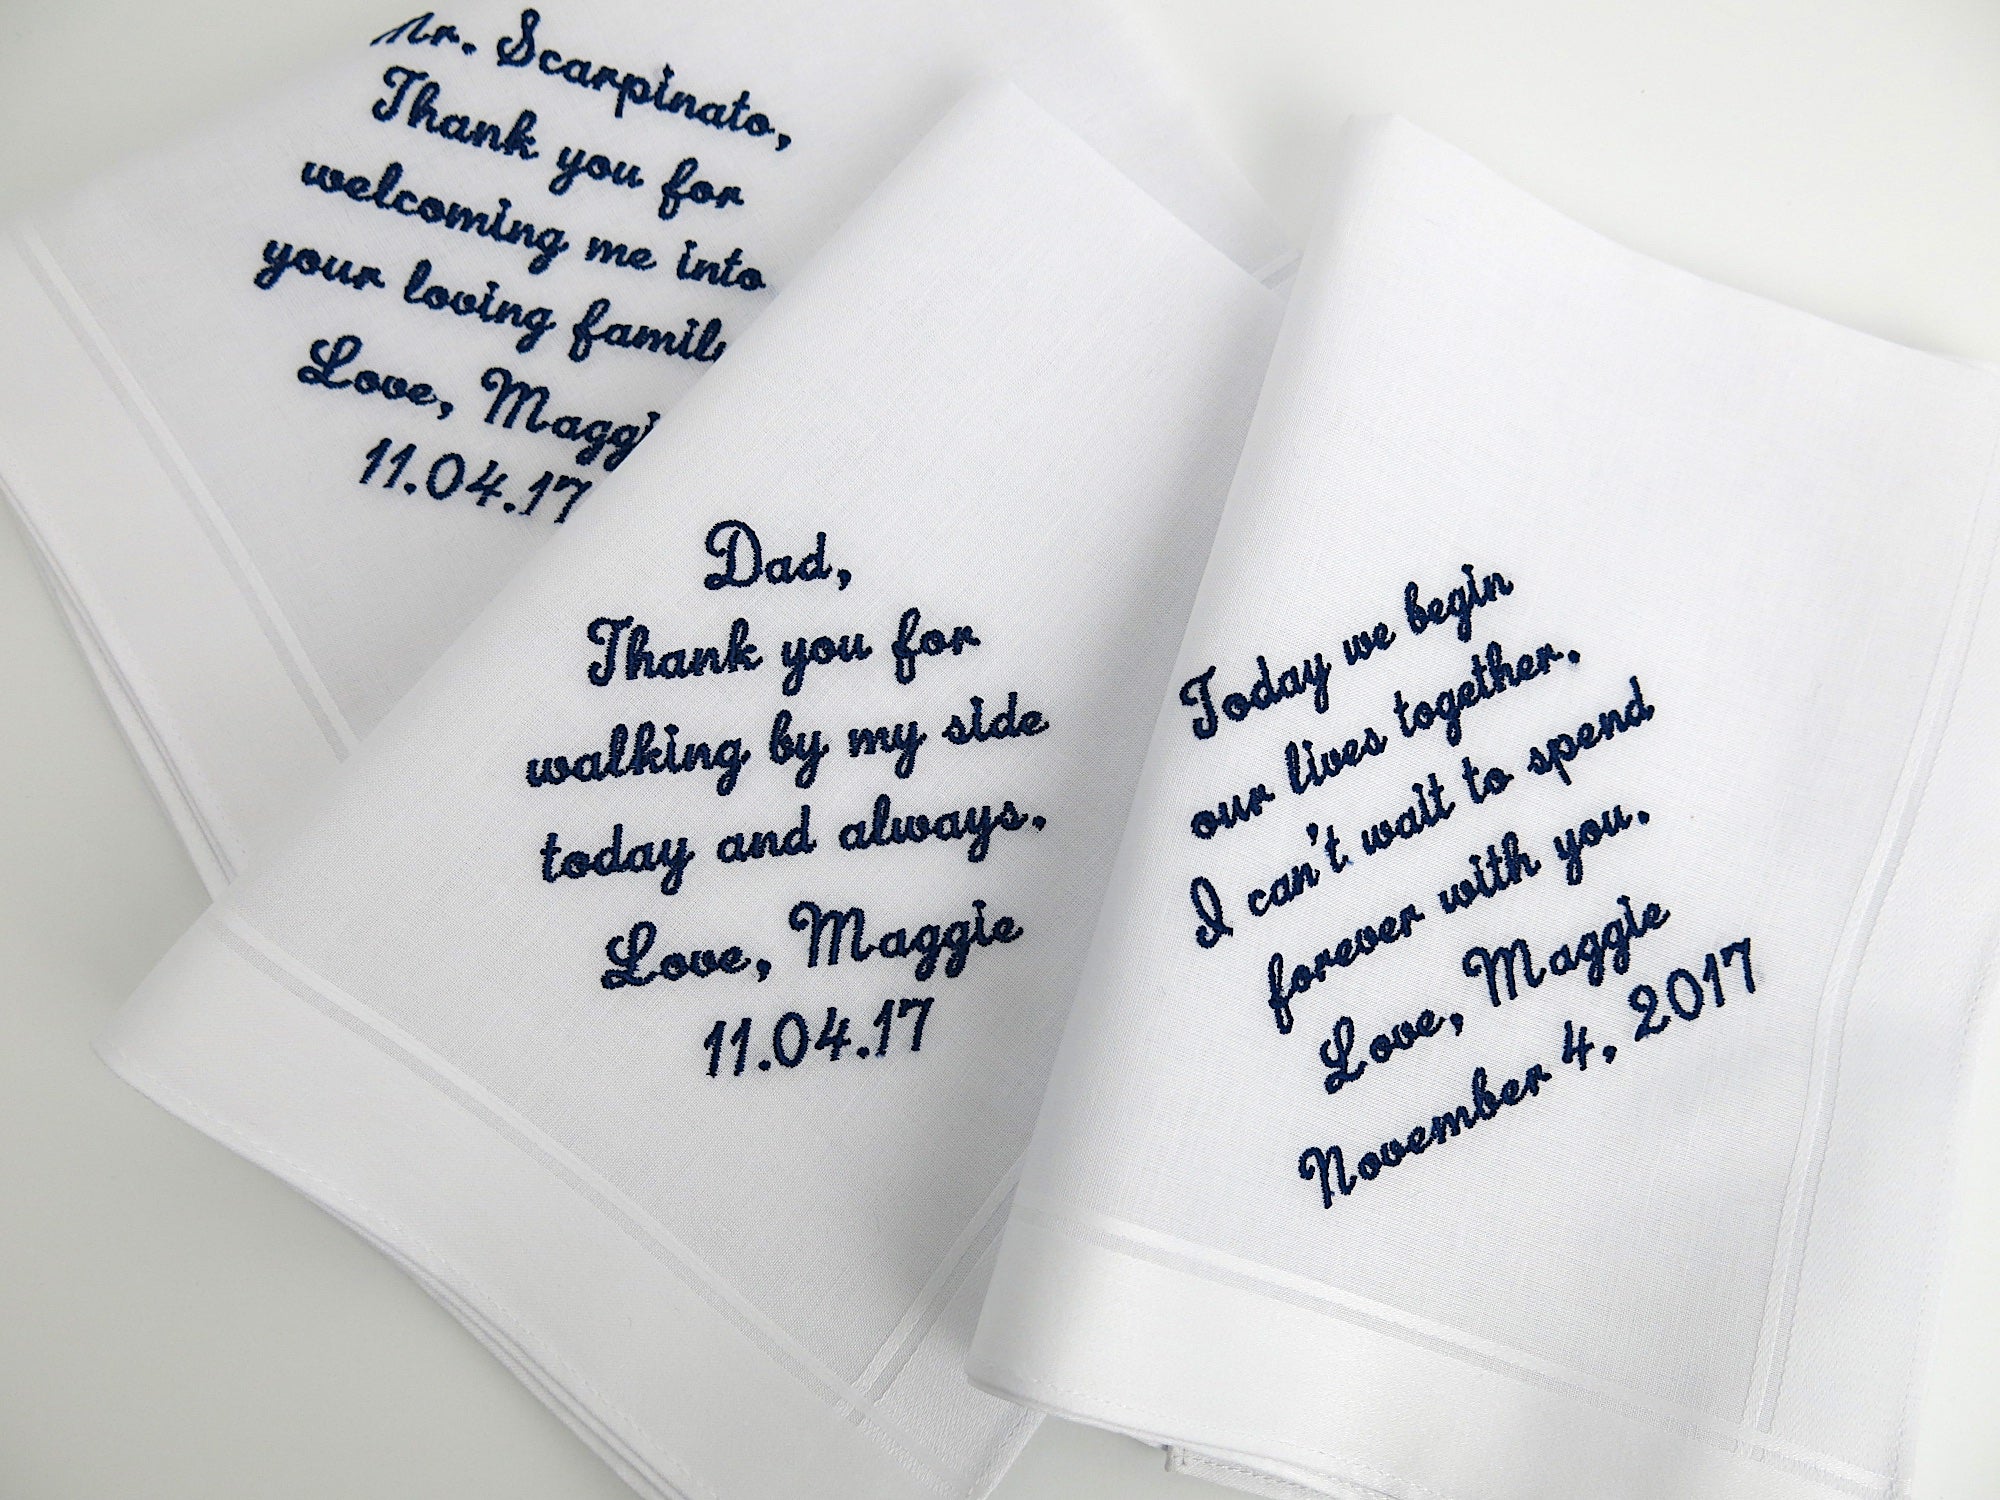 Mr. Scarpinato,
Thank you for
welcoming me into
your loving famil
Love, Maggi
11.04.17
Dad,
Thank you for
walking by my side
today and always.
Love, Maggie
11.04.17
Today we begin
our lives together.
I can't wait to spend
forever with you.
Love, Maggie
November 4, 2017